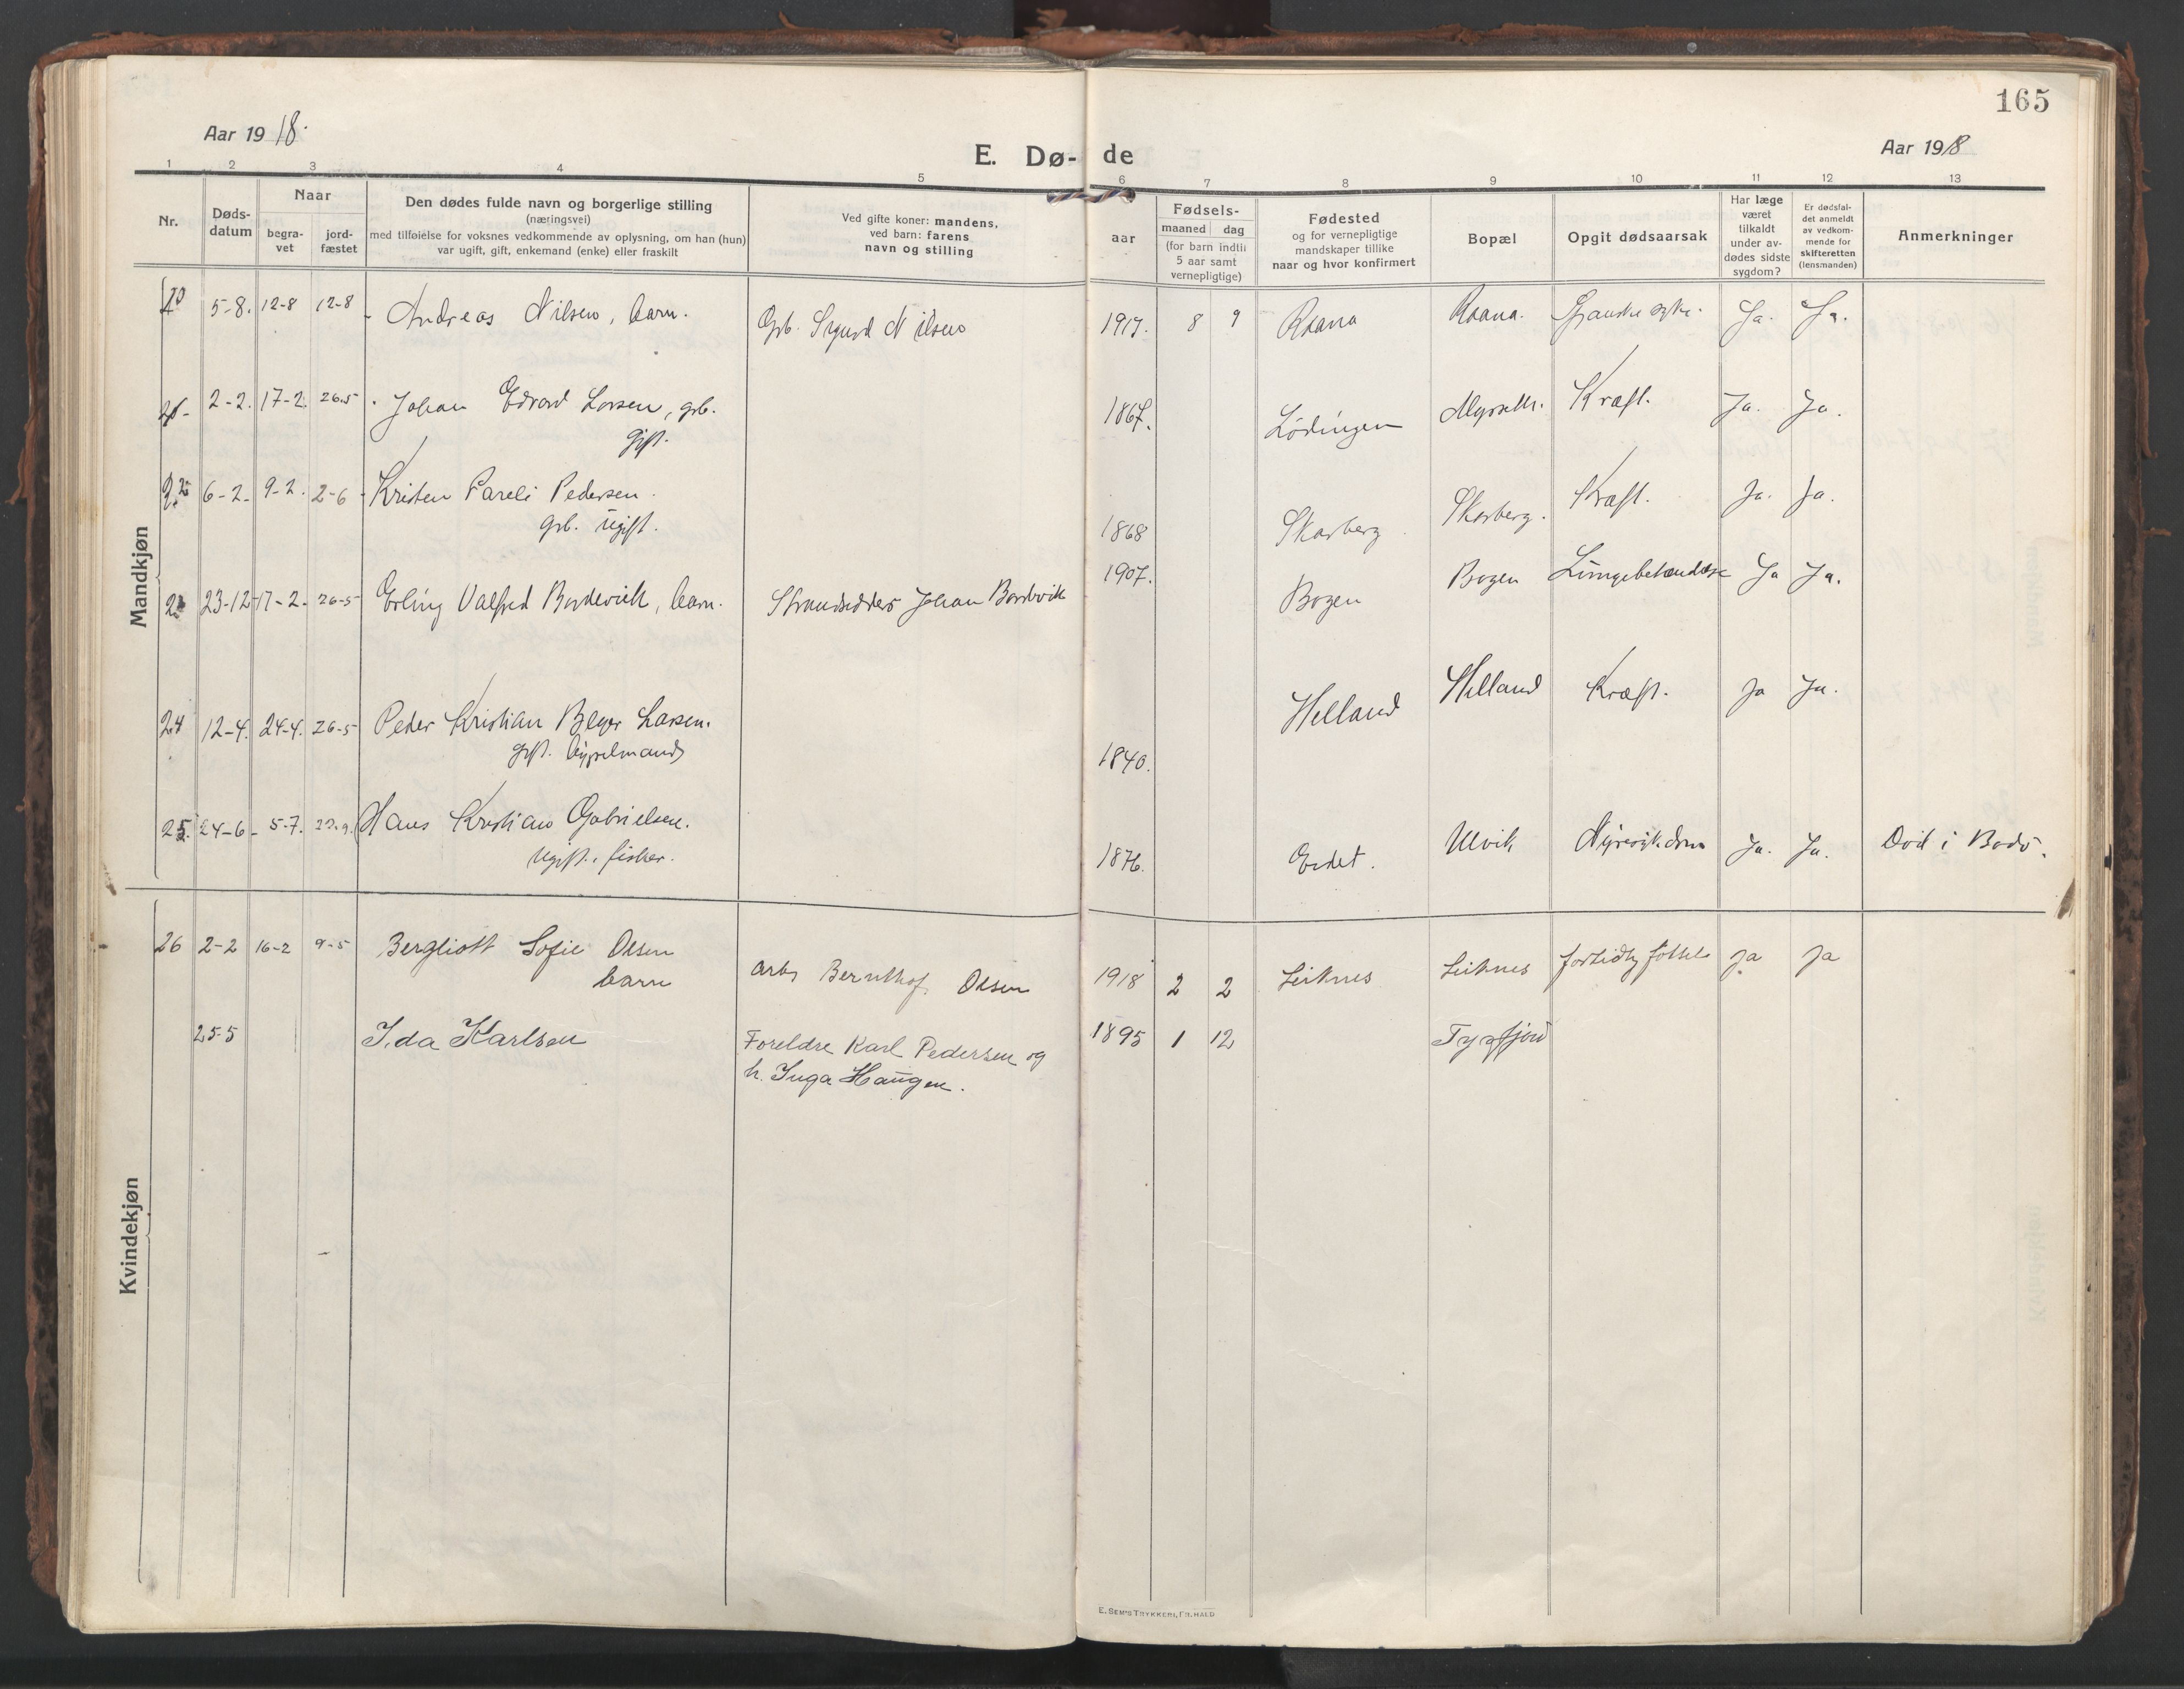 165
Aar 1918.
E. Dø- de
Aar 1918
1 2 3 4 5 6 7 8 9 10 11 12 13
Nr.
Døds-
datum
Naar
begra-
vet
jord-
fæstet
Den dødes fulde navn og borgerlige stilling
(næringsvei)
med tilføielse for voksnes vedkommende av oplysning, om han (hun)
var ugift, gift, enkemand (enke) eller fraskilt
Ved gifte koner: mandens,
ved barn: farens
navn og stilling
Fødsels-
aar
maaned dag
(for barn indtil
5 aar samt
vernepligtige)
Fødested
og for vernepligtige
mandskaper tillike
naar og hvor konfirmert
Bopæl
Opgit dødsaarsak
Har læge
været
tilkaldt
under av-
dødes sidste
sygdom?
Er dødsfal-
det anmeldt
av vedkom-
mende for
skifteretten
(lensmanden)
Anmerkninger
Mandkjøn
5-8. 12-8 12-8 Andreas Nilsen, barn. Grb. Sigurd Nilsen 1917. 8 9 Raana Raana. Spanske syke. Ja. Ja.
2-2. 17-2. 26-5 Johan Edvard Larsen, grb.
gift.
1867. Lödingen Kræft. Ja. Ja.
22 6-2. 9-2. 2-6 Kristen Pareli Pedersen.
grb. ugift.
1868 Skarberg Skarberg. Kræft. Ja. Ja.
23 23-12 17-2. 26-5 Erling Valfred Bordevik, barn. Strandsidder Johan Bordevik 1907. Bogen Bogen Lungebetændelse Ja Ja.
24 12-4. 24-4. 26-5 Peder Kristian Larsen.
gift.
1840. Helland Helland Kræft. Ja Ja.
25. 24-6- 5-7. Hans Kristian Gabrielsen.
ugift. fisker.
1876. Eidet. Ulvik Nyresykdom Ja. Ja. Död i Bodö.
Kvindekjøn
26 2-2 16-2 9-5 Bergliott Sofie Olsen
barn
arb. Bernthof. Olsen 1918 2 2 Leiknes Leiknes fortidlig fötsel Ja Ja
25-5 Ida Karlsen Foreldre Karl Pedersen og
h. Inga Haugen.
1895 1 12 Tysfjord
E. SEM'S TRYKKERI, FR. HALD